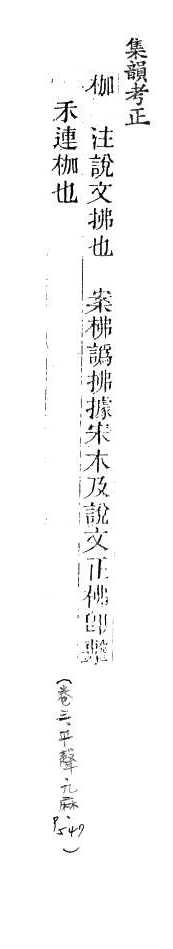 集韻考正
枷 注說文拂也 案柫譌拂據宋本及說文正柫即擊
禾連枷也
(卷三、平聲、九麻、P549)